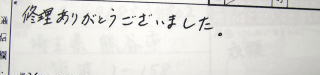 修理ありがとうございました。
通信欄